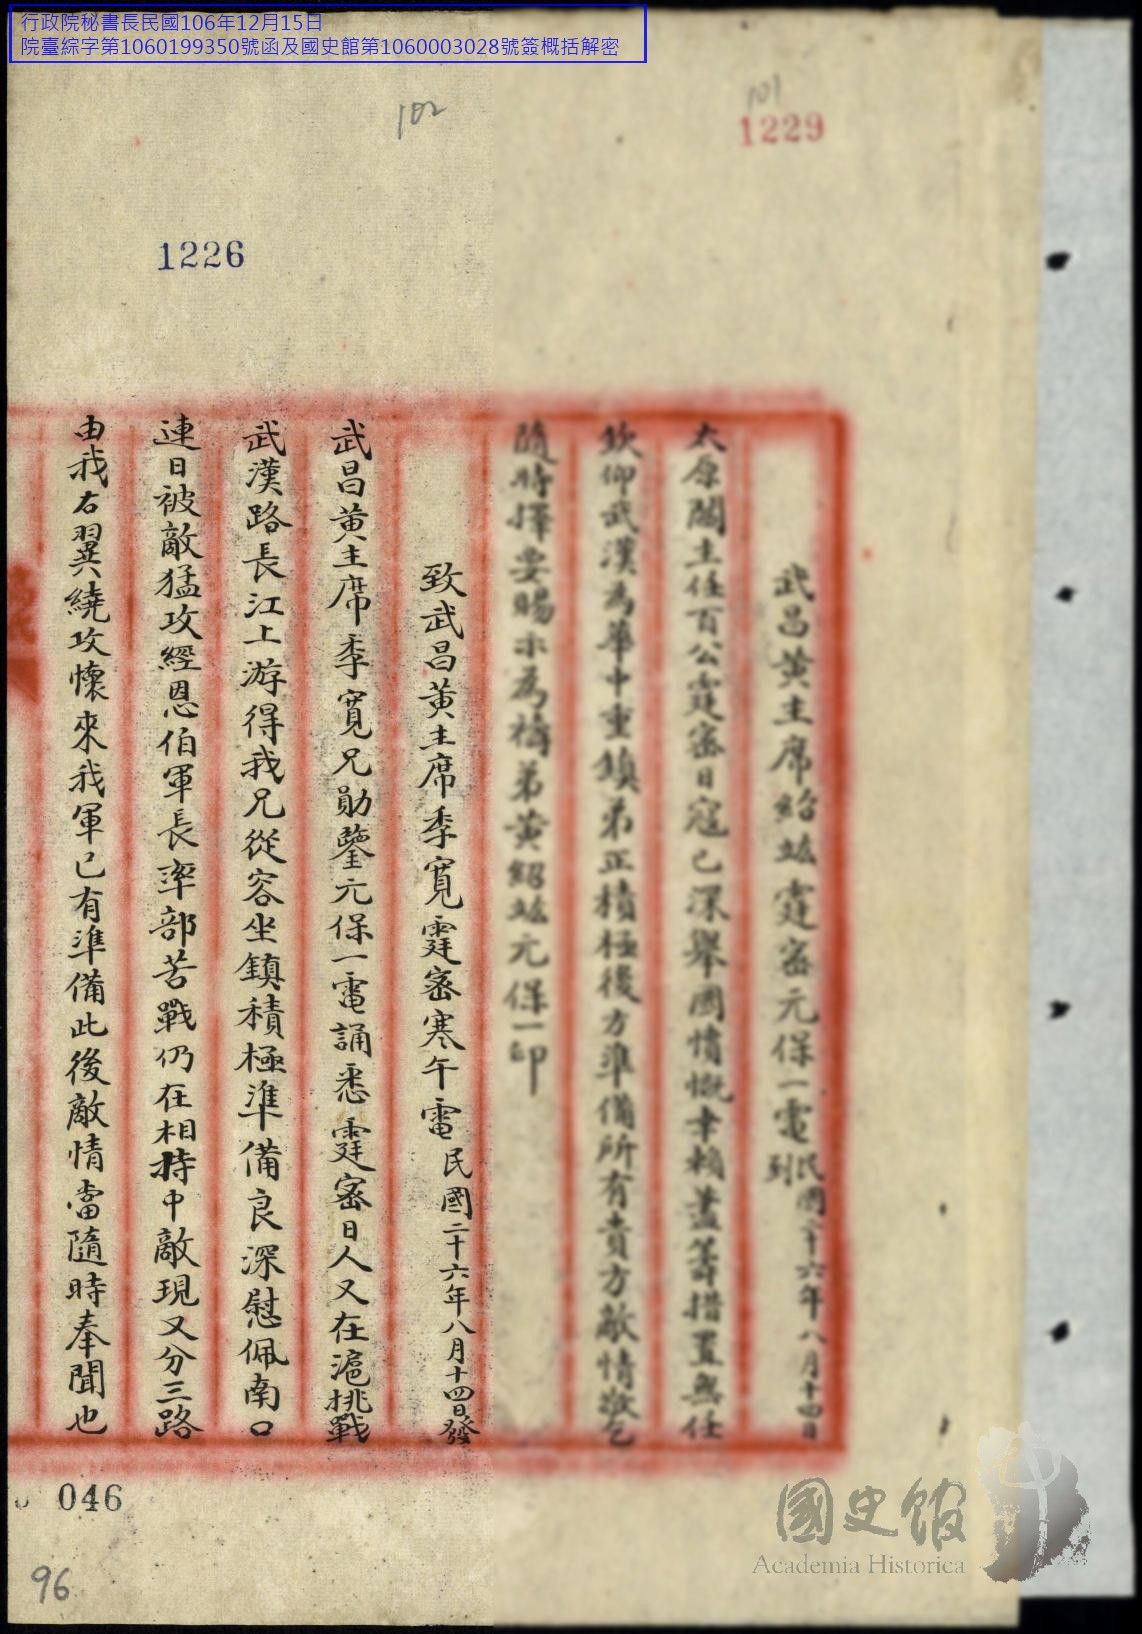 行政院秘書長民國106年12月15日
院臺綜字第1060199350號函及國史館第1060003028號簽概括解密
101
1229
102
1226
武昌黃主席紹竑霆密元保一電民國二十六年八月十四日到
太原閻主任百公霆密日寇已深舉國憤慨幸賴藎籌措置無任
欽仰武漢為華中重鎮弟正積極後方準備所有貴方敵情敬乞
隨時擇要賜示為禱弟黃紹竑元保一印
致武昌黃主席季寬霆密寒午電民國二十六年八月十四日發
武昌黃主席季寬兄勛鑒元保一電誦悉霆密日人又在滬挑戰
武漢路長江上游得我兄從容坐鎮積極準備良深慰佩南口
連日被敵猛攻經恩伯軍長率部苦戰仍在相持中敵現又分三路
由我右翼繞攻懷來我軍已有準備此後敵情當隨時奉聞也
046
96
國史館
Academia Historica